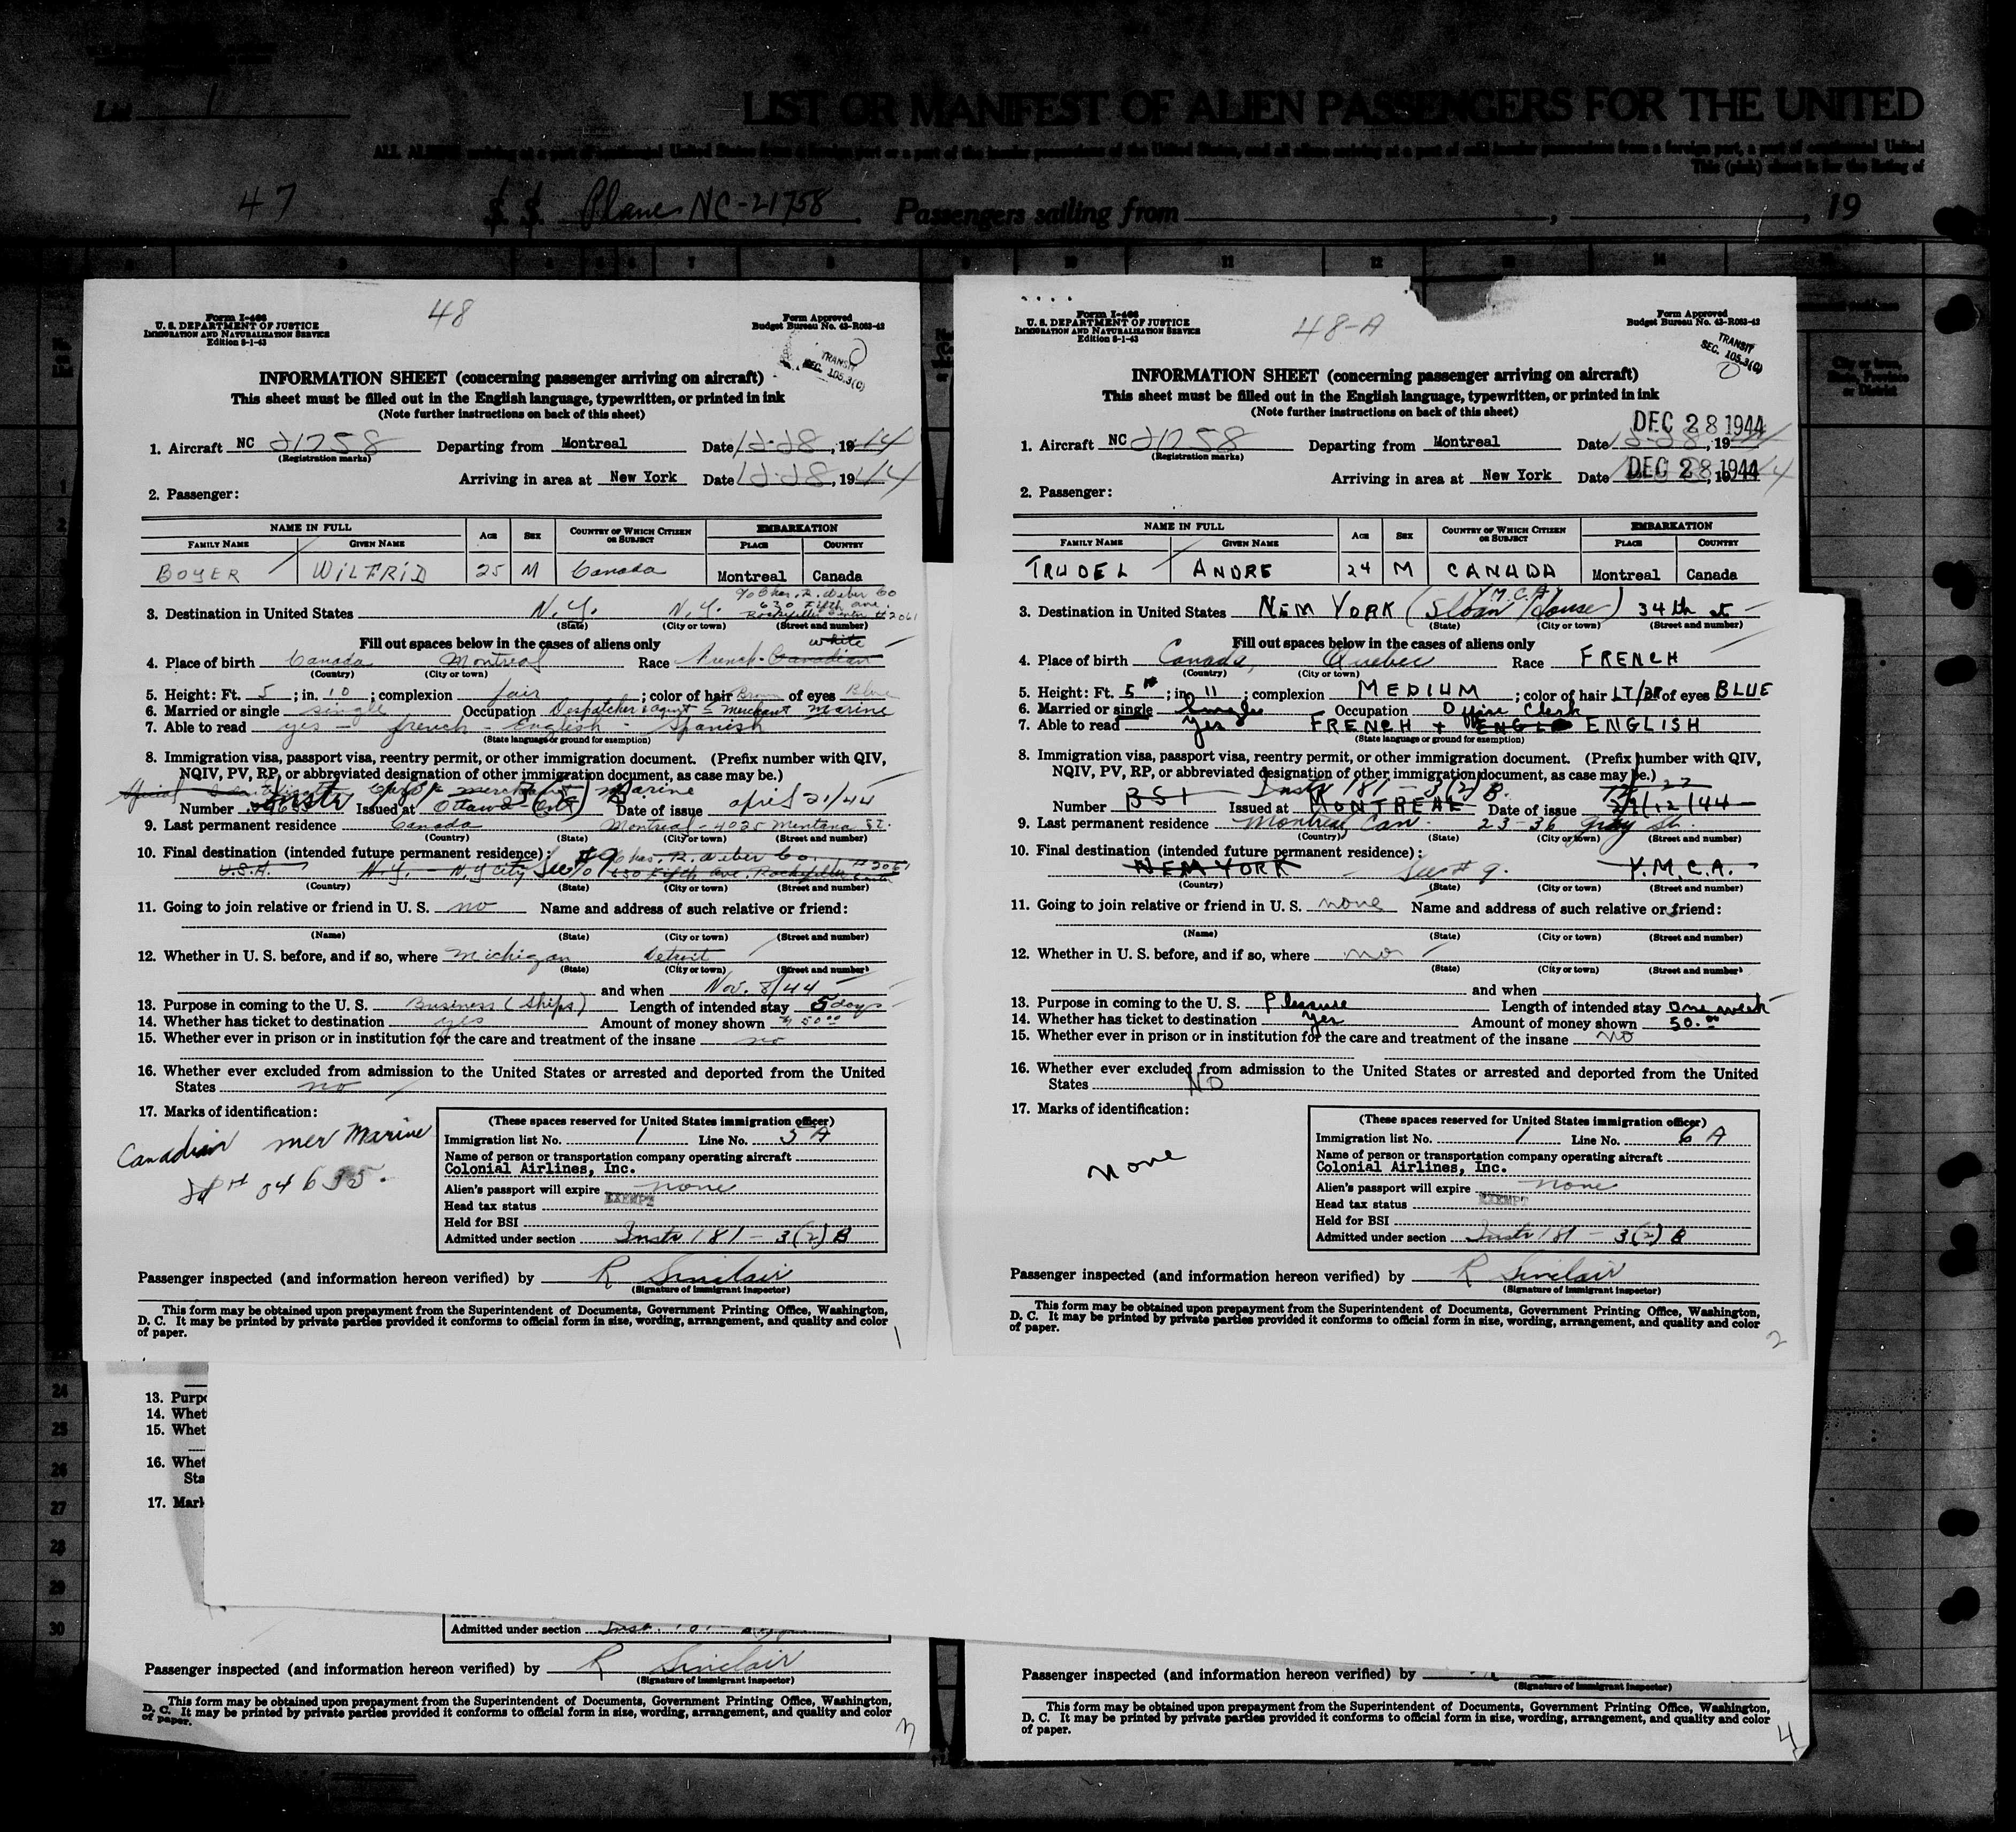 List 1
LIST OR MANIFEST OF ALIEN PASSENGERS FOR THE UNITED
ALL ALIENS arriving at a port of continental United States from a foreign port or a port of the insular possessions of the United States, and all aliens arriving at a port of said insular possessions from a foreign port, a port of continental United
This (pink) sheet is for the listing of
47 S. S. Plane NC-21758 Passengers sailing from , , 19
48
Form I-466
U. S. DEPARTMENT OF JUSTICE
IMMIGRATION AND NATURALIZATION SERVICE
Edition 8-1-43
Form Approved
Budget Bureau No. 43-R083-42
TRANSIT
SEC. 105.3(C)
INFORMATION SHEET (concerning passenger arriving on aircraft)
This sheet must be filled out in the English language, typewritten, or printed in ink
(Note further instructions on back of this sheet)
1. Aircraft NC 21758 Departing from Montreal Date 12-28, 1944
(Registration marks)
Arriving in area at New York Date 12-28, 1944
2. Passenger:
NAME IN FULL AGE SEX COUNTRY OF WHICH CITIZEN OR SUBJECT EMBARKATION
FAMILY NAME GIVEN NAME PLACE COUNTRY
BOYER WILFRID 25 M Canada Montreal Canada
% Chas. R. Weber Co
630 Fifth ave.
3. Destination in United States N.Y. N.Y. Rockefeller Center #2061
(State) (City or town) (Street and number)
Fill out spaces below in the cases of aliens only
white
4. Place of birth Canada Montreal Race French-Canadian
(Country) (City or town)
5. Height: Ft. 5; in. 10; complexion fair; color of hair Brown of eyes Blue
6. Married or single single Occupation Despatcher agent - merchant marine
7. Able to read yes - french - English - Spanish
(State language or ground for exemption)
8. Immigration visa, passport visa, reentry permit, or other immigration document. (Prefix number with QIV,
NQIV, PV, RP, or abbreviated designation of other immigration document, as case may be.)
merchant marine
Number Instr 181 Issued at Ottawa - Ont Date of issue april 21/44
9. Last permanent residence Canada Montreal - 4025 Mentana St.
(Country) (State) (City or town) (Street and number)
10. Final destination (intended future permanent residence): Chas. R. Weber Co.
U.S.A. N.Y. - N.Y city See #9 630 Fifth Ave. Rockefeller Center #2061
(Country) (State) (City or town) (Street and number)
11. Going to join relative or friend in U. S. no Name and address of such relative or friend:
(Name) (State) (City or town) (Street and number)
12. Whether in U. S. before, and if so, where Michigan Detroit
(State) (City or town) (Street and number)
and when Nov. 8/44
13. Purpose in coming to the U. S. Business (ships) Length of intended stay 5 days
14. Whether has ticket to destination yes Amount of money shown $50.00
15. Whether ever in prison or in institution for the care and treatment of the insane no
16. Whether ever excluded from admission to the United States or arrested and deported from the United
States no
17. Marks of identification:
Canadian mer Marine
04635.
(These spaces reserved for United States immigration officer)
Immigration list No. 1 Line No. 5 A
Name of person or transportation company operating aircraft
Colonial Airlines, Inc.
Alien's passport will expire none
Head tax status EXEMPT
Held for BSI
Admitted under section Instr 181 - 3(2) B
Passenger inspected (and information hereon verified) by R Sinclair
(Signature of immigrant inspector)
This form may be obtained upon prepayment from the Superintendent of Documents, Government Printing Office, Washington,
D. C. It may be printed by private parties provided it conforms to official form in size, wording, arrangement, and quality and color
of paper.
1
48-A
Form I-466
U. S. DEPARTMENT OF JUSTICE
IMMIGRATION AND NATURALIZATION SERVICE
Edition 8-1-43
Form Approved
Budget Bureau No. 43-R083-42
TRANSIT
SEC. 105.3(C)
INFORMATION SHEET (concerning passenger arriving on aircraft)
This sheet must be filled out in the English language, typewritten, or printed in ink
(Note further instructions on back of this sheet)
DEC 28 1944
1. Aircraft NC 21758 Departing from Montreal Date 12-28, 1944
(Registration marks)
Arriving in area at New York Date DEC 28 1944, 19
2. Passenger:
NAME IN FULL AGE SEX COUNTRY OF WHICH CITIZEN OR SUBJECT EMBARKATION
FAMILY NAME GIVEN NAME PLACE COUNTRY
TRUDEL ANDRE 24 M CANADA Montreal Canada
Y.M.C.A
3. Destination in United States NEW YORK (Sloan House) 34th st
(State) (City or town) (Street and number)
Fill out spaces below in the cases of aliens only
4. Place of birth Canada, Quebec Race FRENCH
(Country) (City or town)
5. Height: Ft. 5; in. 11; complexion MEDIUM; color of hair LT/BR of eyes BLUE
6. Married or single Single Occupation Office Clerk
7. Able to read yes FRENCH + ENGL ENGLISH
(State language or ground for exemption)
8. Immigration visa, passport visa, reentry permit, or other immigration document. (Prefix number with QIV,
NQIV, PV, RP, or abbreviated designation of other immigration document, as case may be.)
Instr 181 - 3(2) B.
Number BSI Issued at MONTREAL Date of issue 29/12/44
9. Last permanent residence Montreal Can. 23-36 Gray St.
(Country) (State) (City or town) (Street and number)
10. Final destination (intended future permanent residence):
NEW YORK See # 9. Y.M.C.A.
(Country) (State) (City or town) (Street and number)
11. Going to join relative or friend in U. S. none Name and address of such relative or friend:
(Name) (State) (City or town) (Street and number)
12. Whether in U. S. before, and if so, where no
(State) (City or town) (Street and number)
and when
13. Purpose in coming to the U. S. Pleasure Length of intended stay One week
14. Whether has ticket to destination yes Amount of money shown 50.00
15. Whether ever in prison or in institution for the care and treatment of the insane NO
16. Whether ever excluded from admission to the United States or arrested and deported from the United
States NO
17. Marks of identification:
None
(These spaces reserved for United States immigration officer)
Immigration list No. 1 Line No. 6 A
Name of person or transportation company operating aircraft
Colonial Airlines, Inc.
Alien's passport will expire none
Head tax status EXEMPT
Held for BSI
Admitted under section Instr 181 - 3(2) B
Passenger inspected (and information hereon verified) by R Sinclair
(Signature of immigrant inspector)
This form may be obtained upon prepayment from the Superintendent of Documents, Government Printing Office, Washington,
D. C. It may be printed by private parties provided it conforms to official form in size, wording, arrangement, and quality and color
of paper.
2
13. Purpo
14. Whet
15. Whet
16. Whet
Sta
17. Mark
Admitted under section
Passenger inspected (and information hereon verified) by R Sinclair
(Signature of immigrant inspector)
This form may be obtained upon prepayment from the Superintendent of Documents, Government Printing Office, Washington,
D. C. It may be printed by private parties provided it conforms to official form in size, wording, arrangement, and quality and color
of paper.
3
Passenger inspected (and information hereon verified) by
(Signature of immigrant inspector)
This form may be obtained upon prepayment from the Superintendent of Documents, Government Printing Office, Washington,
D. C. It may be printed by private parties provided it conforms to official form in size, wording, arrangement, and quality and color
of paper.
4
24
25
26
27
28
29
30